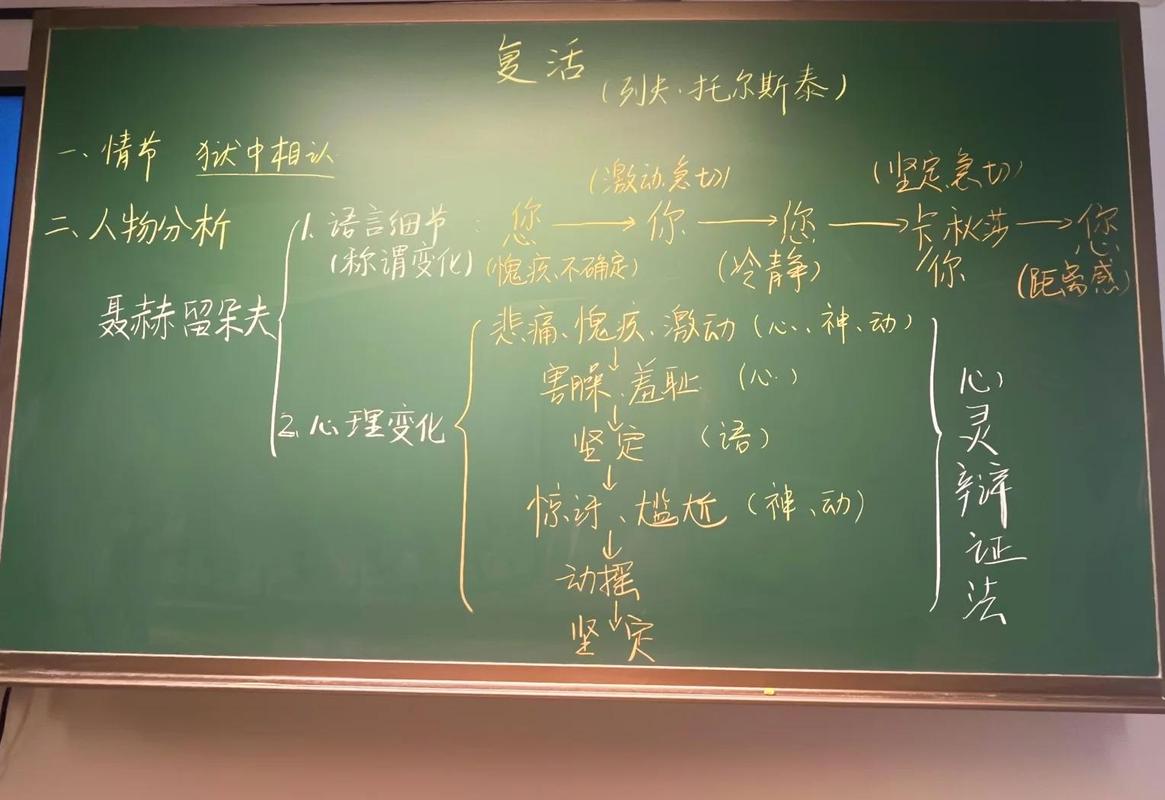 复活
(列夫·托尔斯泰)
一、情节 狱中相认
(激动急切) (坚定急切)
二、人物分析
1. 语言细节: 您→你→您→卡秋莎/你→您
(称谓变化) (愧疚、不确定) (冷静) (距离感)
聂赫留朵夫
悲痛、愧疚、激动(心、神、动)
↓
害臊、羞耻 (心)
↓
2. 心理变化
坚定 (语)
↓
惊讶、尴尬 (神、动)
↓
动摇
↓
坚定
心灵辩证法